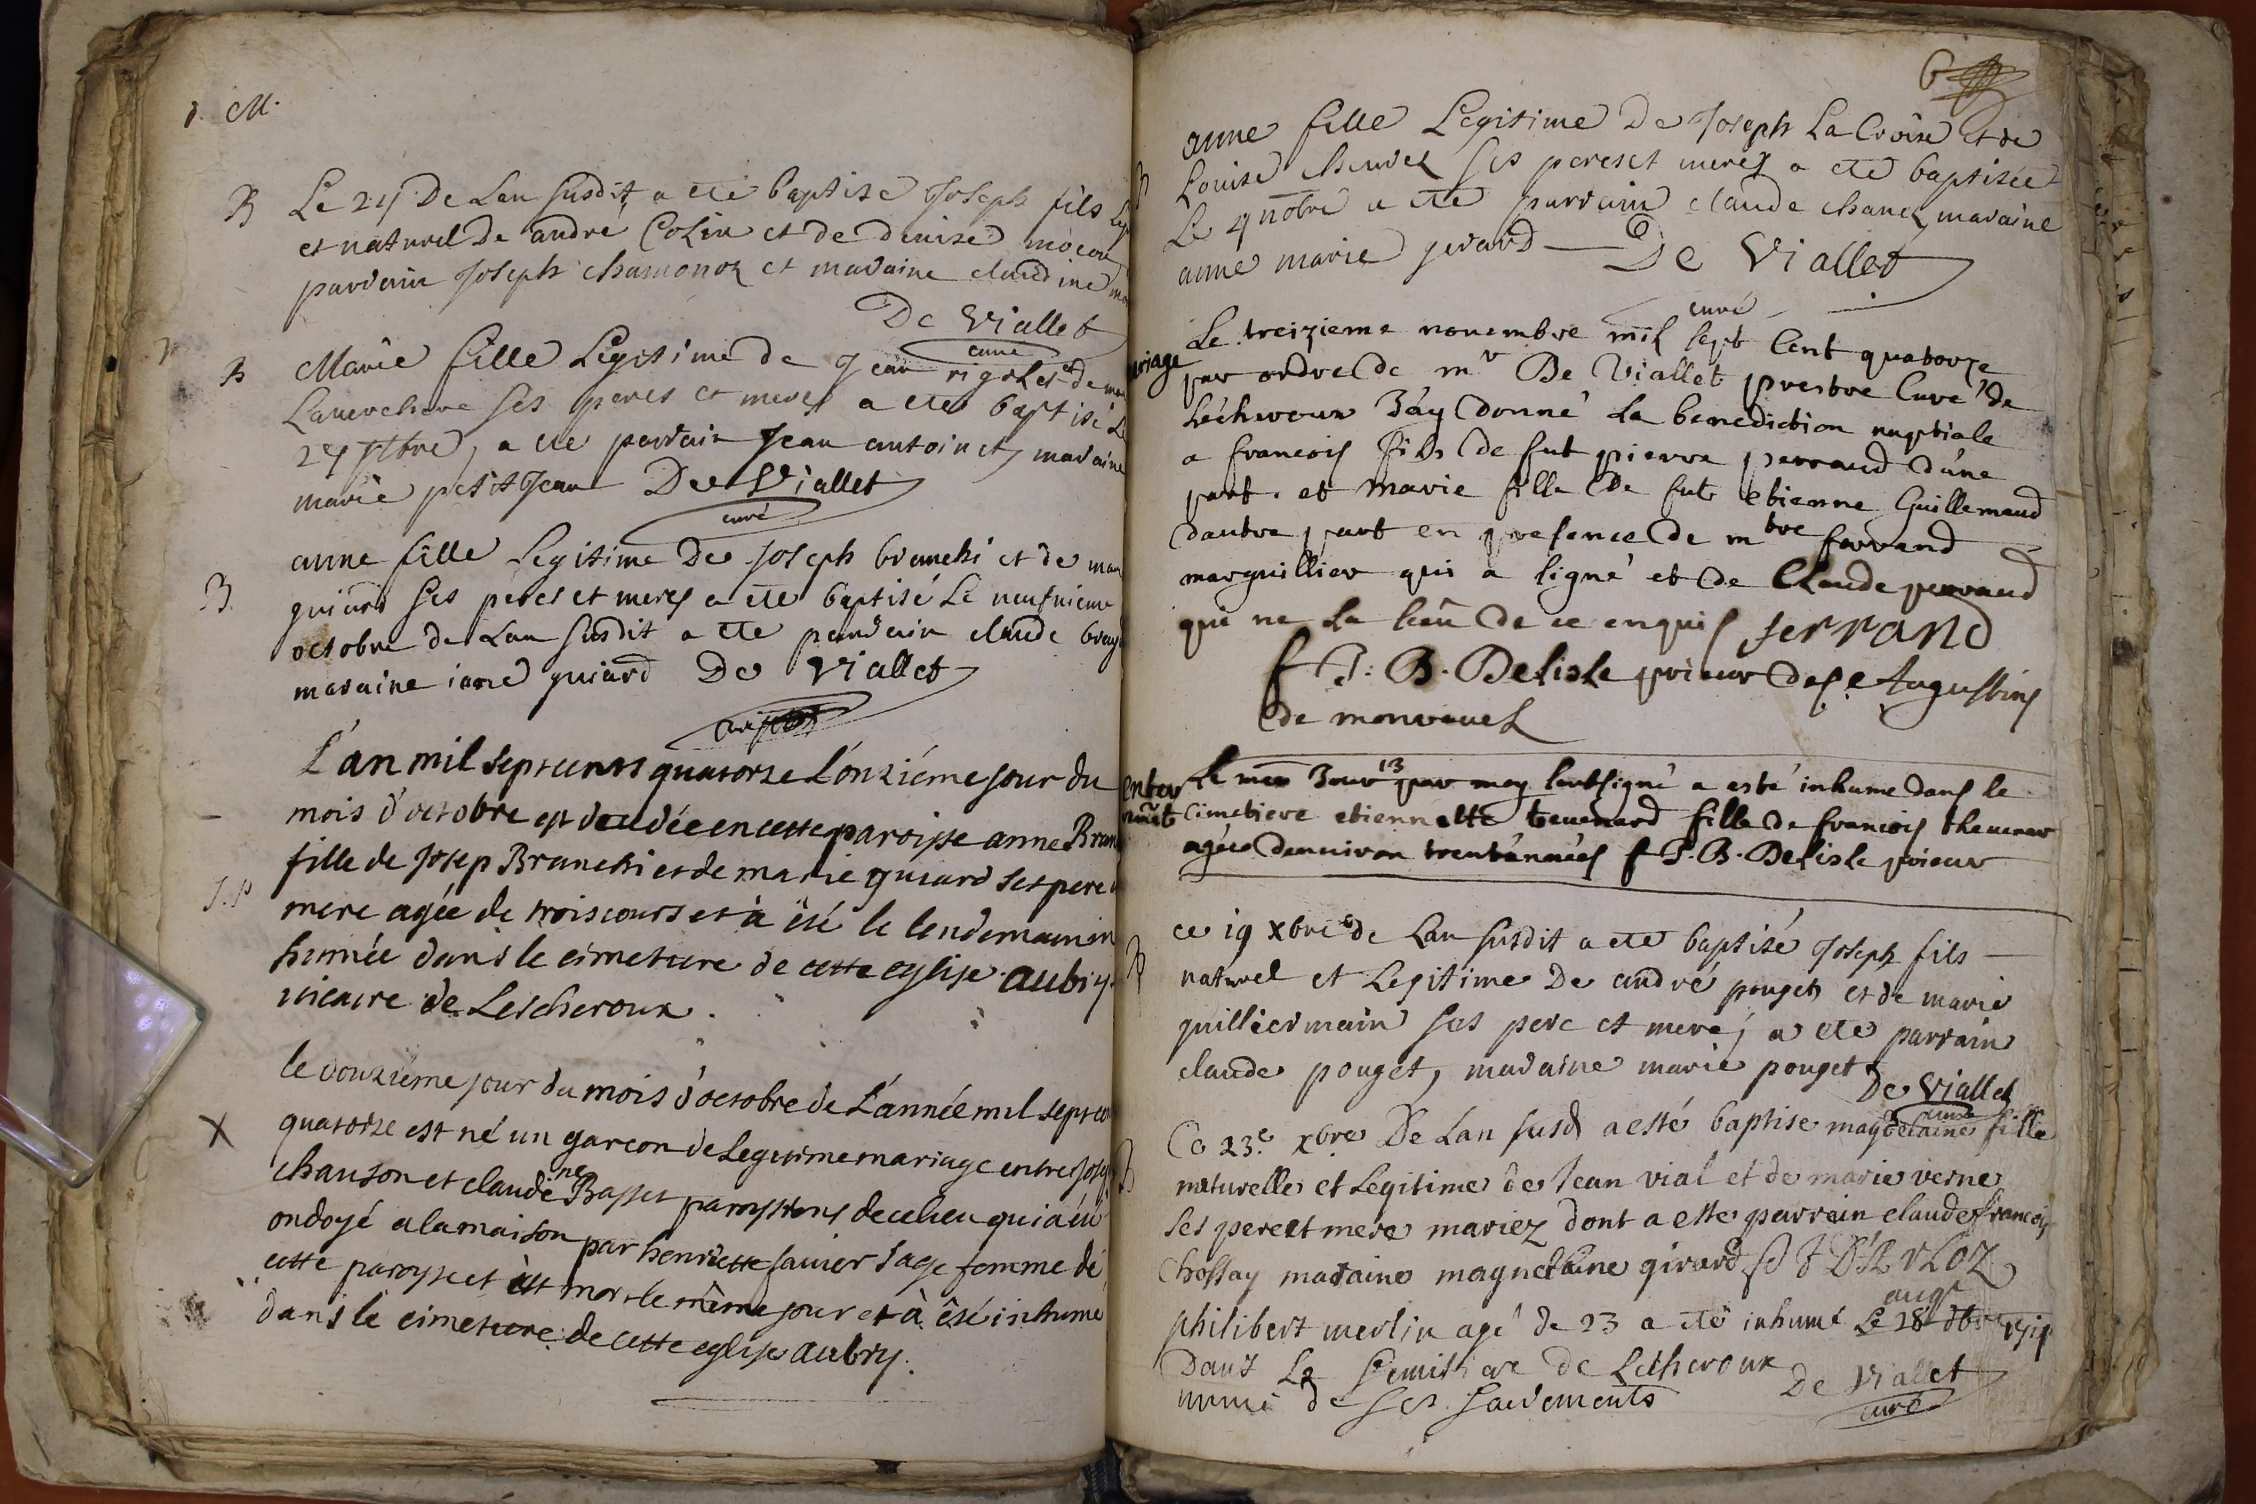 M.
B
Le 24 De Lan susdit, a ete baptise Joseph fils
et naturel de andré Colin et de denise
parrain Joseph chamonoz et maraine claudine
De Viallet
curé
B
Marie fille Legitime de Jean rigolet et de
ses peres et meres a ete baptisé
27 7bre, a ete parrain Jean antoinet, maraine
marie petitJean De Viallet
curé
B.
anne fille Legitime De Joseph brunchi et de
guiard ses peres et meres a ete baptisé Le neufvieme
octobre de Lan susdit a ete parrain claude
maraine iane guiard De Viallet
L'an mil sept cents quatorze L'onziéme jour du
mois d'octobre est decedée en cette paroisse anne
fille de Josep Brunchi et de marie guiard ses pere
mere agée de trois jours et à été le lendemain in
humée dans le cimetiere de cette eglise. aubry.
vicaire de Lescheroux.
X
le douziéme jour du mois d'octobre de L'année mil sept
quatorze est né un garcon de legitime mariage entre
chanson et claudine Basset paroissiens de ce lieu qui a eté
ondoyé a la maison par henriette sage femme de
cette paroysse et est mort le même jour et à été inhumé
dans le cimetiere de cette eglise aubry.
6
B
anne fille Legitime De Joseph La Croix et de
Louise ses peres et meres a ete baptisée
Le 4 nobre a ete parrain claude chanel, maraine
anne marie girard De Viallet
curé
Le treizieme novembre mil sept Cent quatorze
riage
par ordre de mr De Viallet prestre Curé de
Léchiroux J'ay donné La benediction nuptiale
a francois fils de fut pierre perraud d'une
part. et marie fille de fut etienne Guillemaud
dautre part en presence de mtre ferrand
marguillier qui a signé et de Claude perraud
qui ne La sceu de ce enquis ferrand
f J. B. Delisle prieur des Augustins
de
enter
rem̃t
Le mem Jour 13 par moy soubsigné a esté inhume dans le
Cimetiere etiennette tevenard fille de francois
agée denviron trent'années f J. B. Delisle prieur
B
ce 19 xbre de Lan susdit a ete baptisé Joseph fils
naturel et Legitime De andré pouget et de marie
guilliermain ses pere et mere, a ete parrain
claude pouget, maraine marie pouget
De Viallet
curé
B
Ce 23e xbre De Lan susd a esté baptise magdelaine fille
naturelle et Legitime de Jean vial et de marie verne
ses pere et mere mariez dont a este parrain claude francois
chossay maraine magdelaine girard
philibert merlin agé de 23 a ete inhumé Le 28
Dans Le Cemitiere de Lecheroux
muni de ses sacrements De Viallet
curé